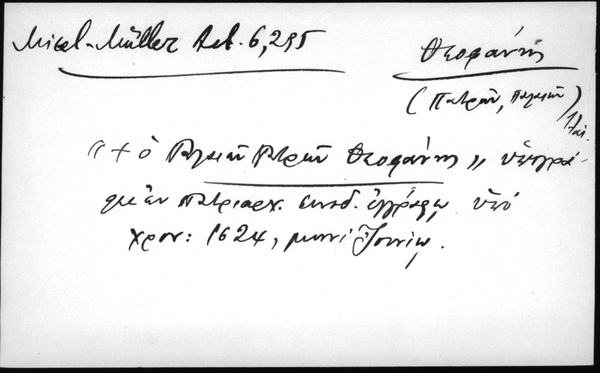 Micl-Müller Act. 6, 295
Θεοφάνης
(Πατρῶν, Παλαιῶν)
17 αἰ.
"+ ὁ Παλαιῶν Πατρῶν Θεοφάνης" ὑπογρά-
φει ἐν πατριαρχ. συνοδ. ἐγγράφῳ ὑπὸ
χρον: 1624, μηνὶ Ἰουνίῳ.